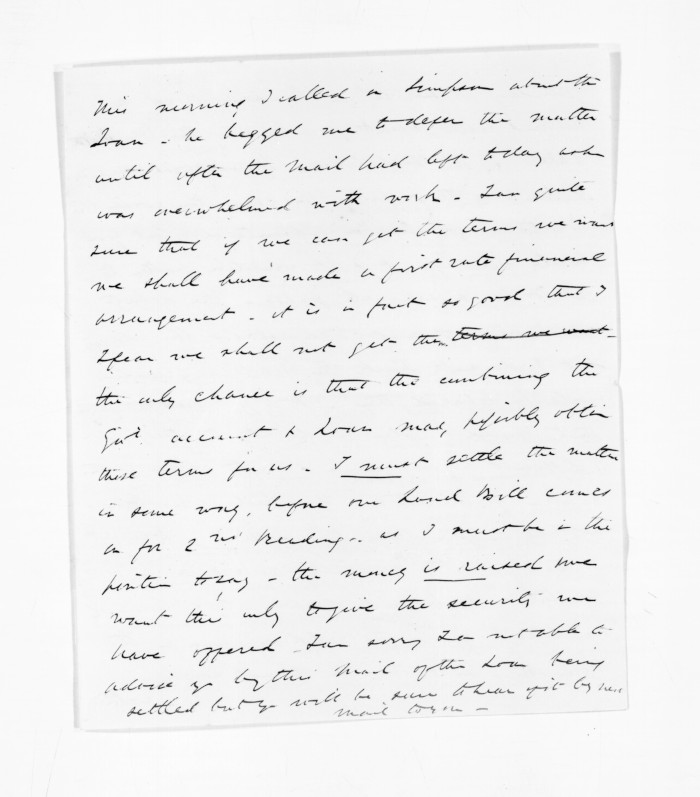 This morning I called on Simpson about the
Loan - he begged me to defer the matter
until after the Mail had left today as he
was overwhelmed with work - I am quite
sure that if we can get the terms we want
we shall have made a first rate financial
arrangement - it is in fact so good that I
I fear we shall not get them terms we want -
the only chance is that the combining the
Govt. account & Loan may possibly obtain
these terms for us - I must settle the matter
in some way, before our Land Bill comes
on for 2nd Reading - as I must be in the
position to say - the money is raised we
want this only to give the security we
have offered - I am sorry I am not able to
advise you by this Mail of the Loan being
settled but you will be sure to hear of it by next
mail to you -